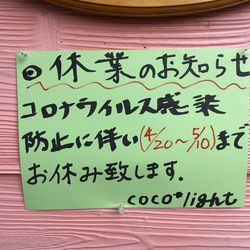 ◎休業のお知らせ
コロナウイルス感染
防止に伴い(4/20〜5/10)まで
お休み致します.
coco*light